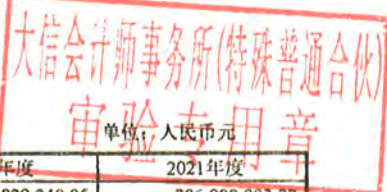 大信会计师事务所(特殊普通合伙)
审验专用章
单位：人民币元
年度 2021年度